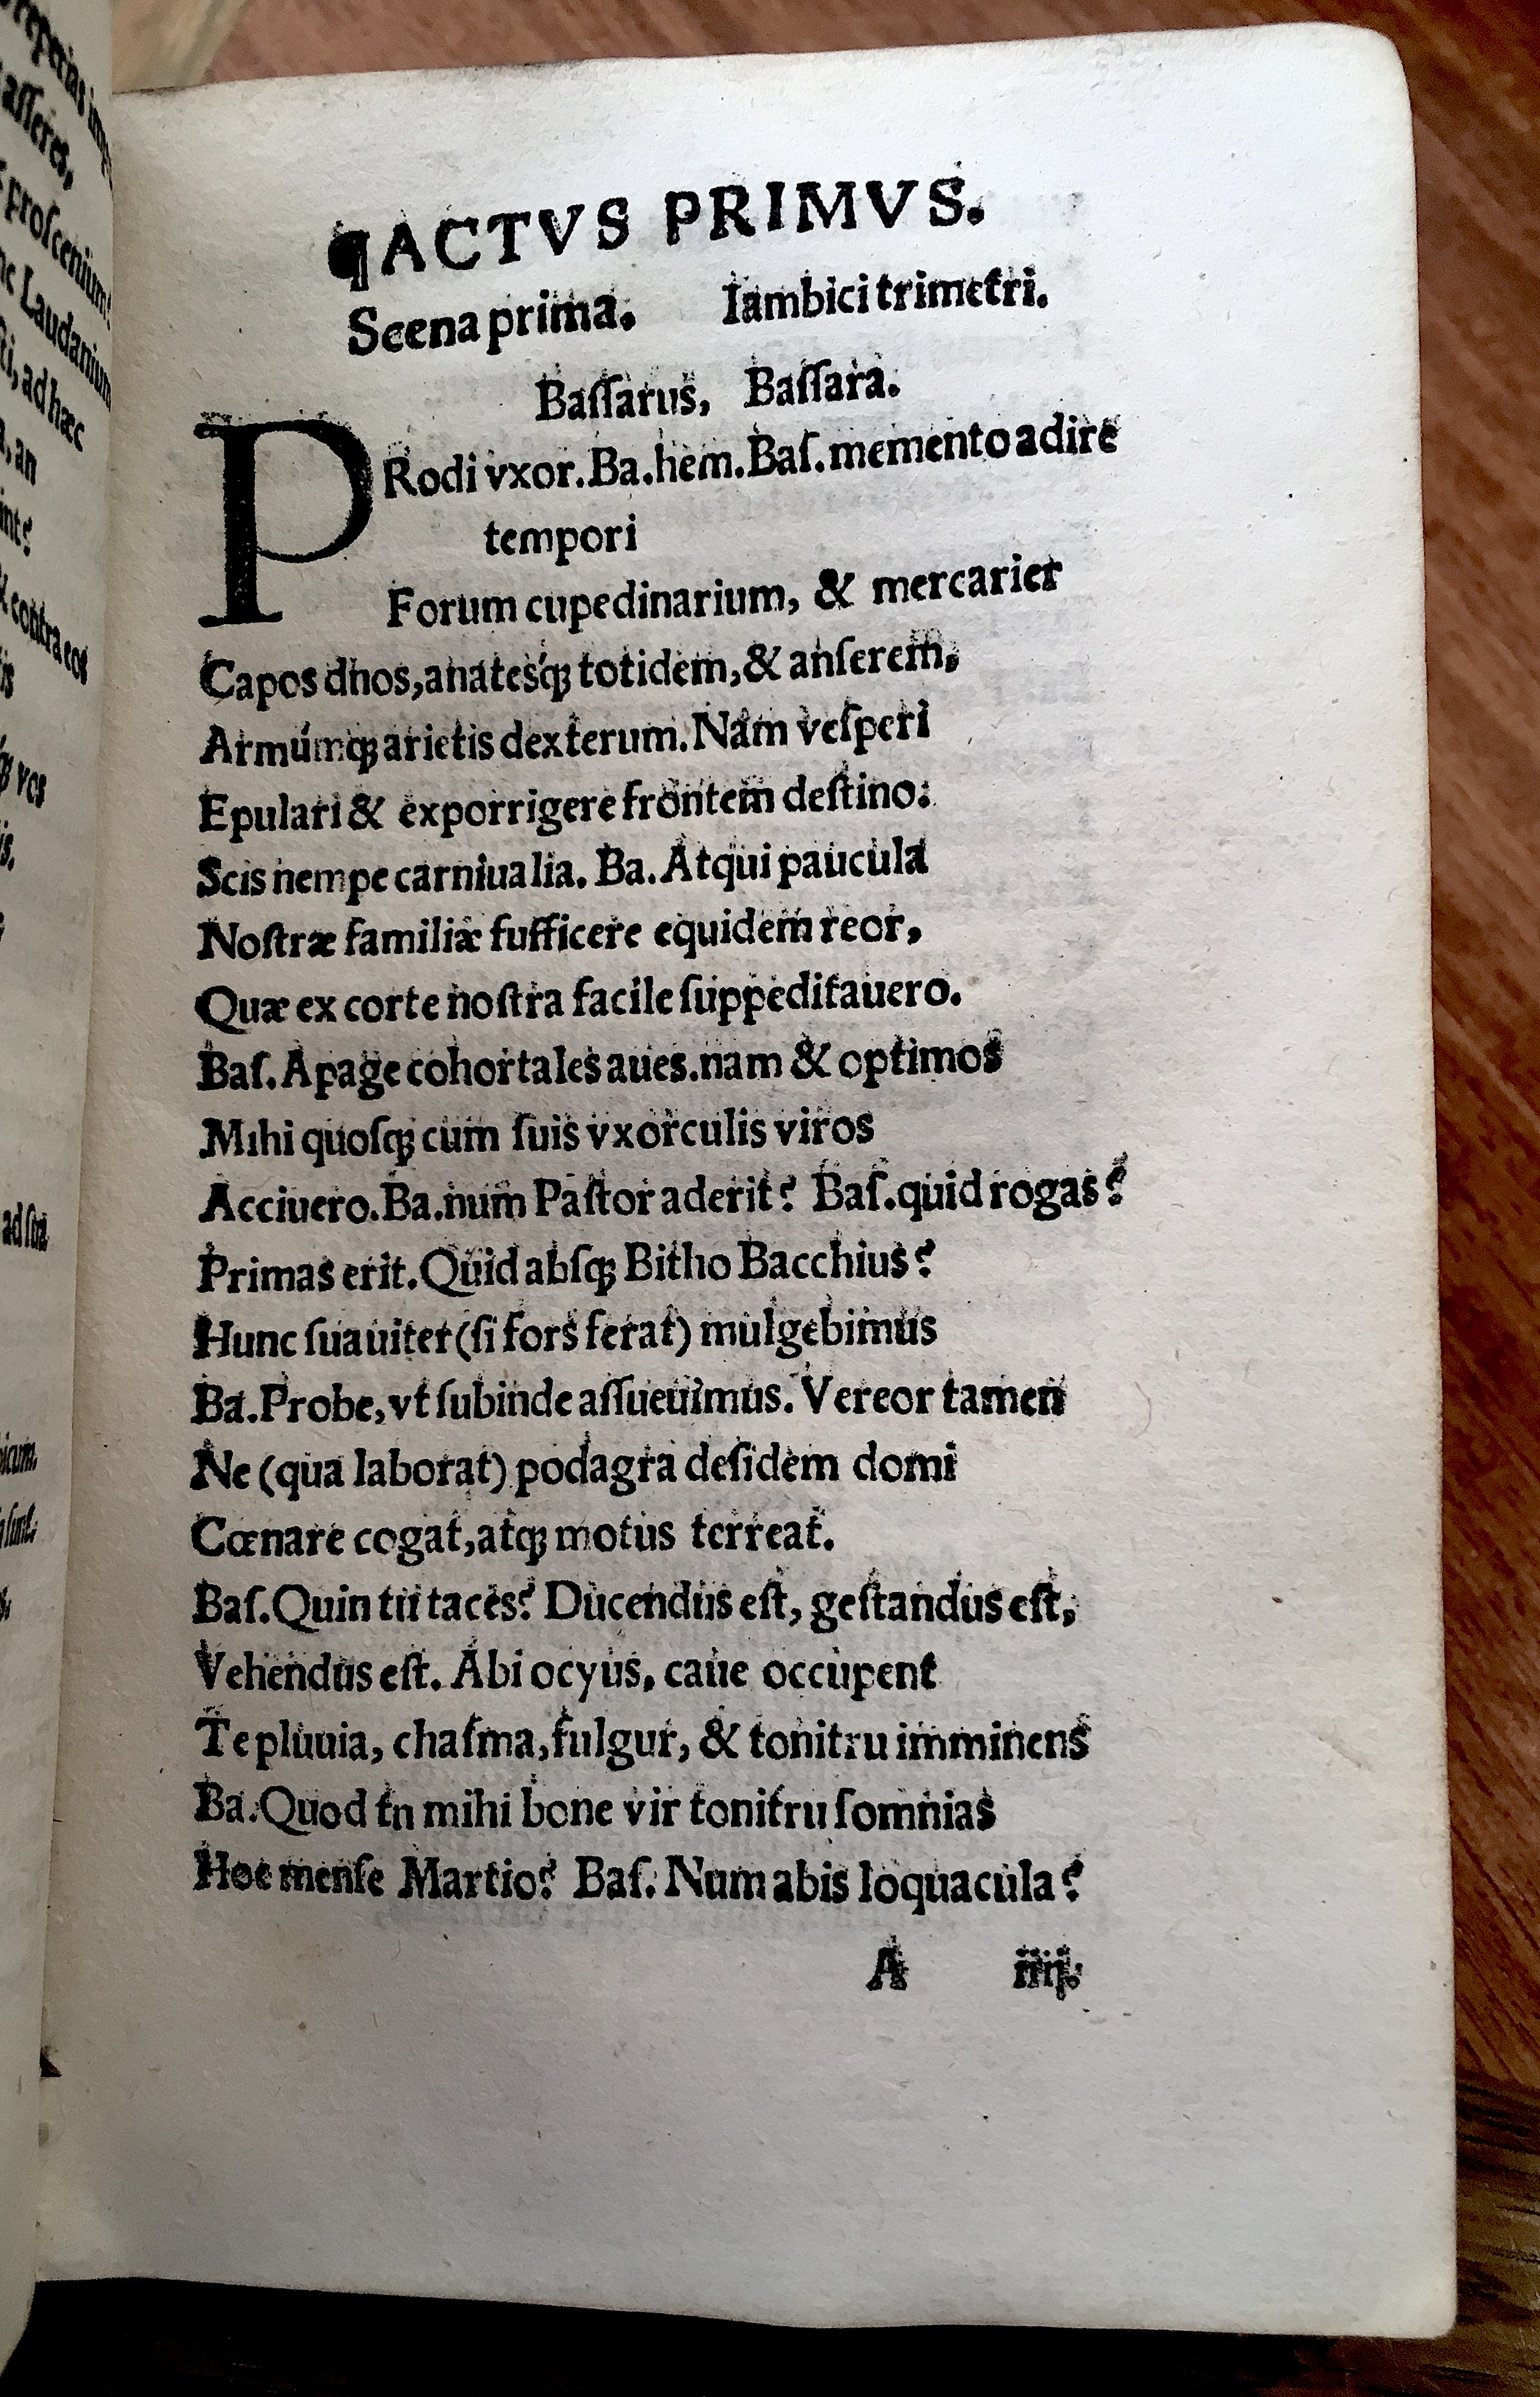 reperias imp
asseres,
proscenium?
nc Laudanium
ti, ad hæc
a, an
int?
& contra eos
is
q; vos
is.
ad sua
bicum.
sunt,
s.
¶ACTVS PRIMVS.
Scena prima. Iambici trimetri.
Baſſarus, Baſſara.
PRodi vxor. Ba. hem. Baſ. memento adire
tempori
Forum cupedinarium, & mercarier
Capos duos, anatesq́; totidem, & anſerem,
Armúmq; arietis dexterum. Nam veſperi
Epulari & exporrigere frontem deſtino:
Scis nempe carniualia. Ba. Atqui paucula
Noſtræ familiæ ſufficere equidem reor,
Quæ ex corte noſtra facile ſuppeditauero.
Baſ. Apage cohortales aues. nam & optimos
Mihi quoſq; cum ſuis vxorculis viros
Acciuero. Ba. num Paſtor aderit? Baſ. quid rogas?
Primas erit. Quid abſq; Bitho Bacchius?
Hunc ſuauiter (ſi fors ferat) mulgebimus
Ba. Probe, vt ſubinde aſſueuimus. Vereor tamen
Ne (qua laborat) podagra deſidem domi
Cœnare cogat, atq; motus terreat.
Baſ. Quin tu taces? Ducendus eſt, geſtandus eſt,
Vehendus eſt. Abi ocyus, caue occupent
Te pluuia, chaſma, fulgur, & tonitru imminens
Ba. Quod tn mihi bone vir tonitru ſomnias
Hoc menſe Martio? Baſ. Num abis loquacula?
A iiij.